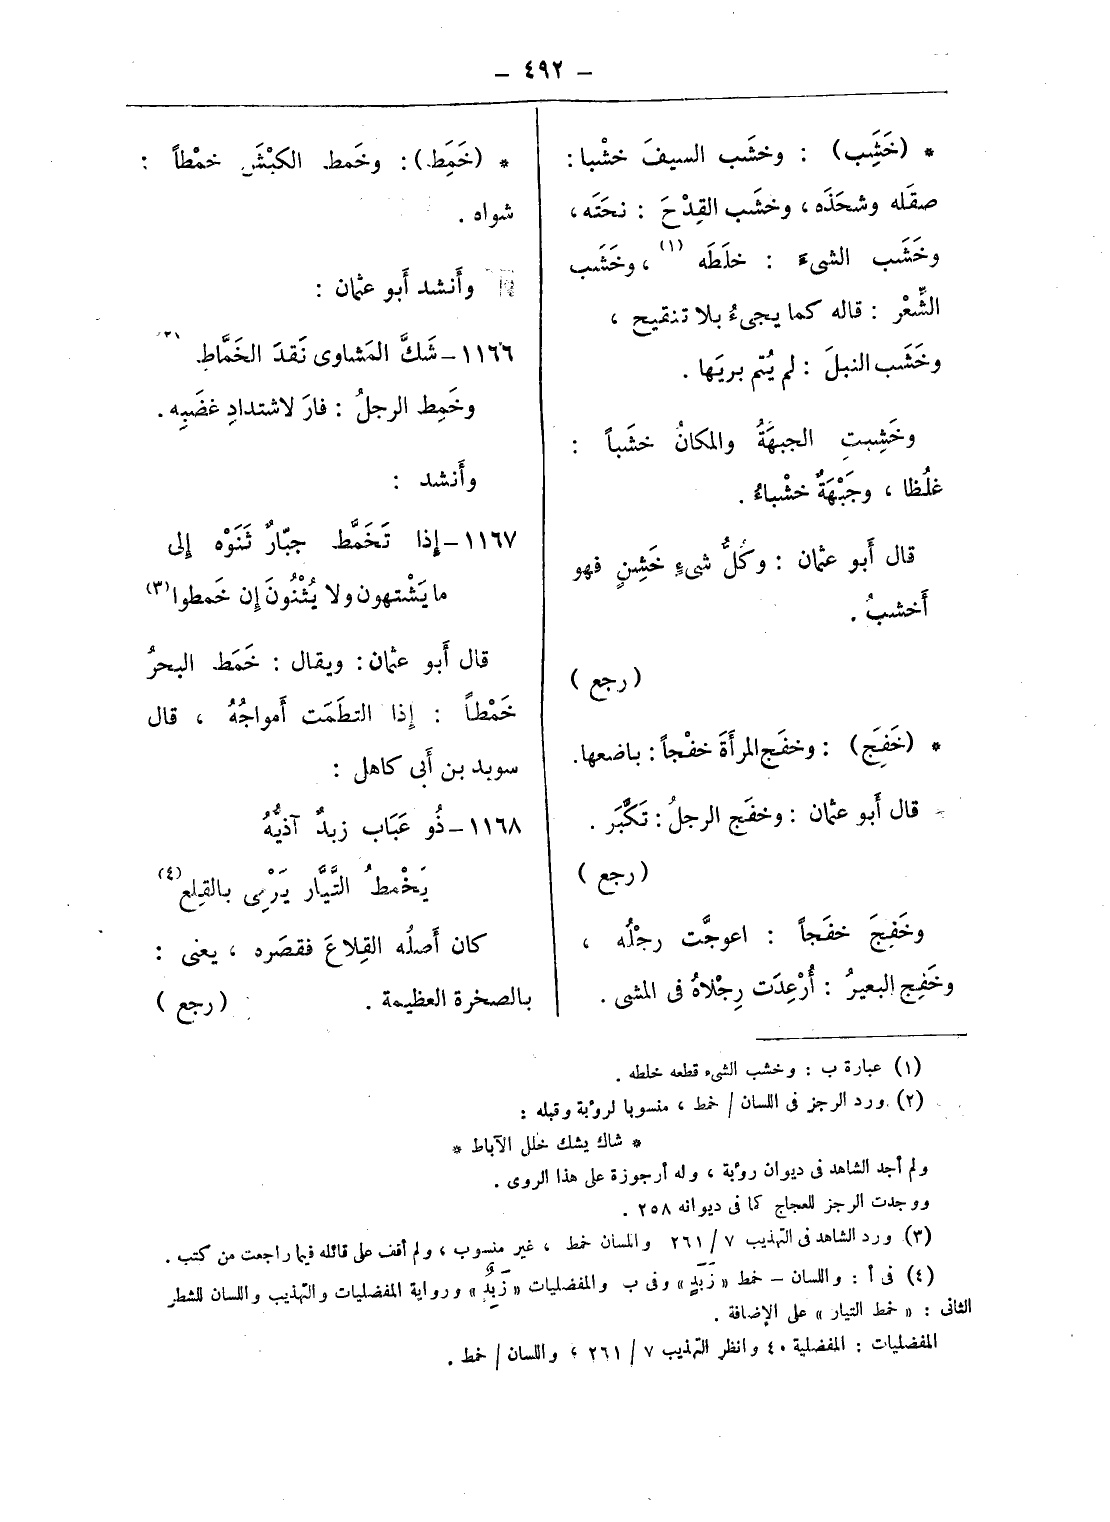 – ٤٩٢ –
* (خَشِب) : وخشَب السيفَ خشْبا :
صقَله وشحَذَه ، وخشَب القِدْحَ : نحَتَه ،
وخَشَب الشىءَ : خلَطَه (١) ، وخَشَب
الشِّعْر : قاله كما يجىءُ بلا تنقيح ،
وخَشَب النبلَ : لم يُتم بريَها .
وخَشِبتِ الجبهَةُ والمكانُ خشَباً :
غلُظا ، وجَبْهَةٌ خشْباءُ .
قال أَبو عثمان : وكلُّ شىءٍ خَشِنٍ فهو
أَخشبُ .
( رجع )
* (خَفِجَ) : وخفَج المرأَةَ خفْجاً : باضعها.
قال أَبو عثمان : وخفَج الرجلُ : تَكَبَّر .
( رجع )
وخَفِجَ خفَجاً : اعوجَّت رجْلُه ،
وخَفِج البعيرُ : أُرْعِدَت رِجْلاهُ فى المشى .
* (خَمِط) : وخَمط الكبْشَ خمْطاً :
شواه .
وأَنشد أَبو عثمان :
١١٦٦ – شَكَّ المَشاوى نَقدَ الخَمَّاطِ (٢)
وخَمِط الرجلُ : فارَ لاشتدادِ غضَبِه .
وأَنشد :
١١٦٧ – إِذا تَخَمَّط جبّارٌ ثَنَوْه إِلى
ما يَشْتهون ولا يُثْنُونَ إِن خَمطوا (٣)
قال أَبو عثمان : ويقال : خَمَط البحرُ
خَمْطاً : إِذا التطَمَت أَمواجُهُ ، قال
سويد بن أَبى كاهل :
١١٦٨ – ذُو عَبَاب زبدٌ آذيُّهُ
يَخْمطُ التَّيَّار يَرْمِى بالقِلع (٤)
كان أَصلُه القِلاعَ فقصَره ، يعنى :
بالصخرة العظيمة . ( رجع )
(١) عبارة ب : وخشب الشىء قطعه خلطه .
(٢) ورد الرجز فى اللسان / خمط ، منسوبا لرؤبة وقبله :
* شاك يشك خلل الآباط *
ولم أجد الشاهد فى ديوان رؤبة ، وله أرجوزة على هذا الروى .
ووجدت الرجز للعجاج كما فى ديوانه ٢٥٨ .
(٣) ورد الشاهد فى التهذيب ٧ / ٢٦١ واللسان خمط ، غير منسوب ، ولم أقف على قائله فيما راجعت من كتب .
(٤) فى أ : واللسان – خمط « زَبَدٍ » وفى ب والمفضليات « زَبِدٌ » ورواية المفضليات والتهذيب واللسان للشطر
الثانى : « خمط التيار » على الإضافة .
المفضليات : المفضلية ٤٠ وانظر التهذيب ٧ / ٢٦١ ، واللسان / خمط .